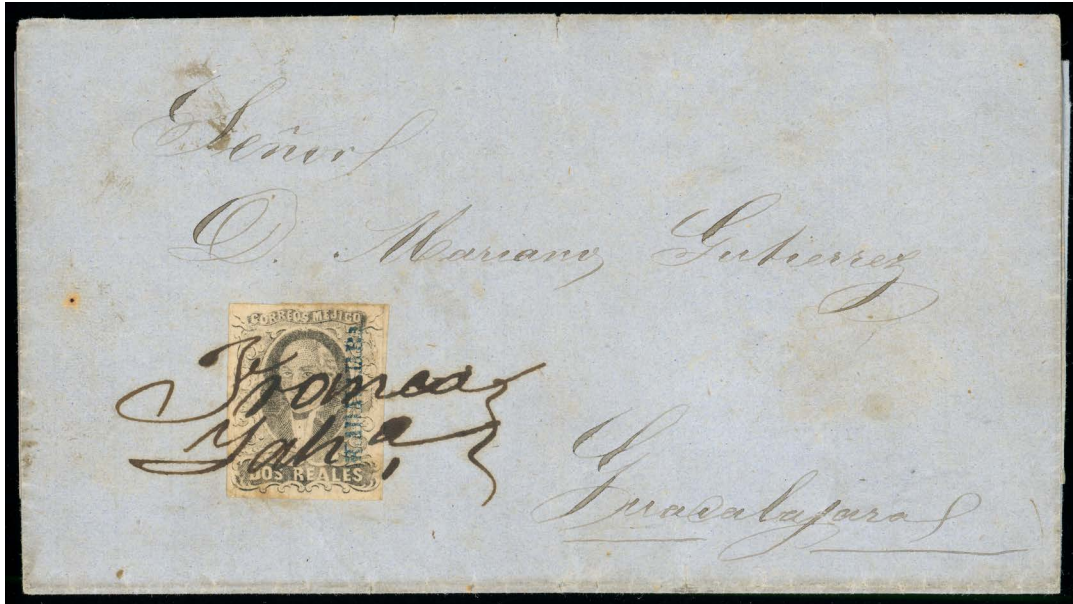 Señor
D. Mariano Gutierrez
CORREOS MEJICO
GUADALAJARA
Franco
DOS REALES
Guadalajara